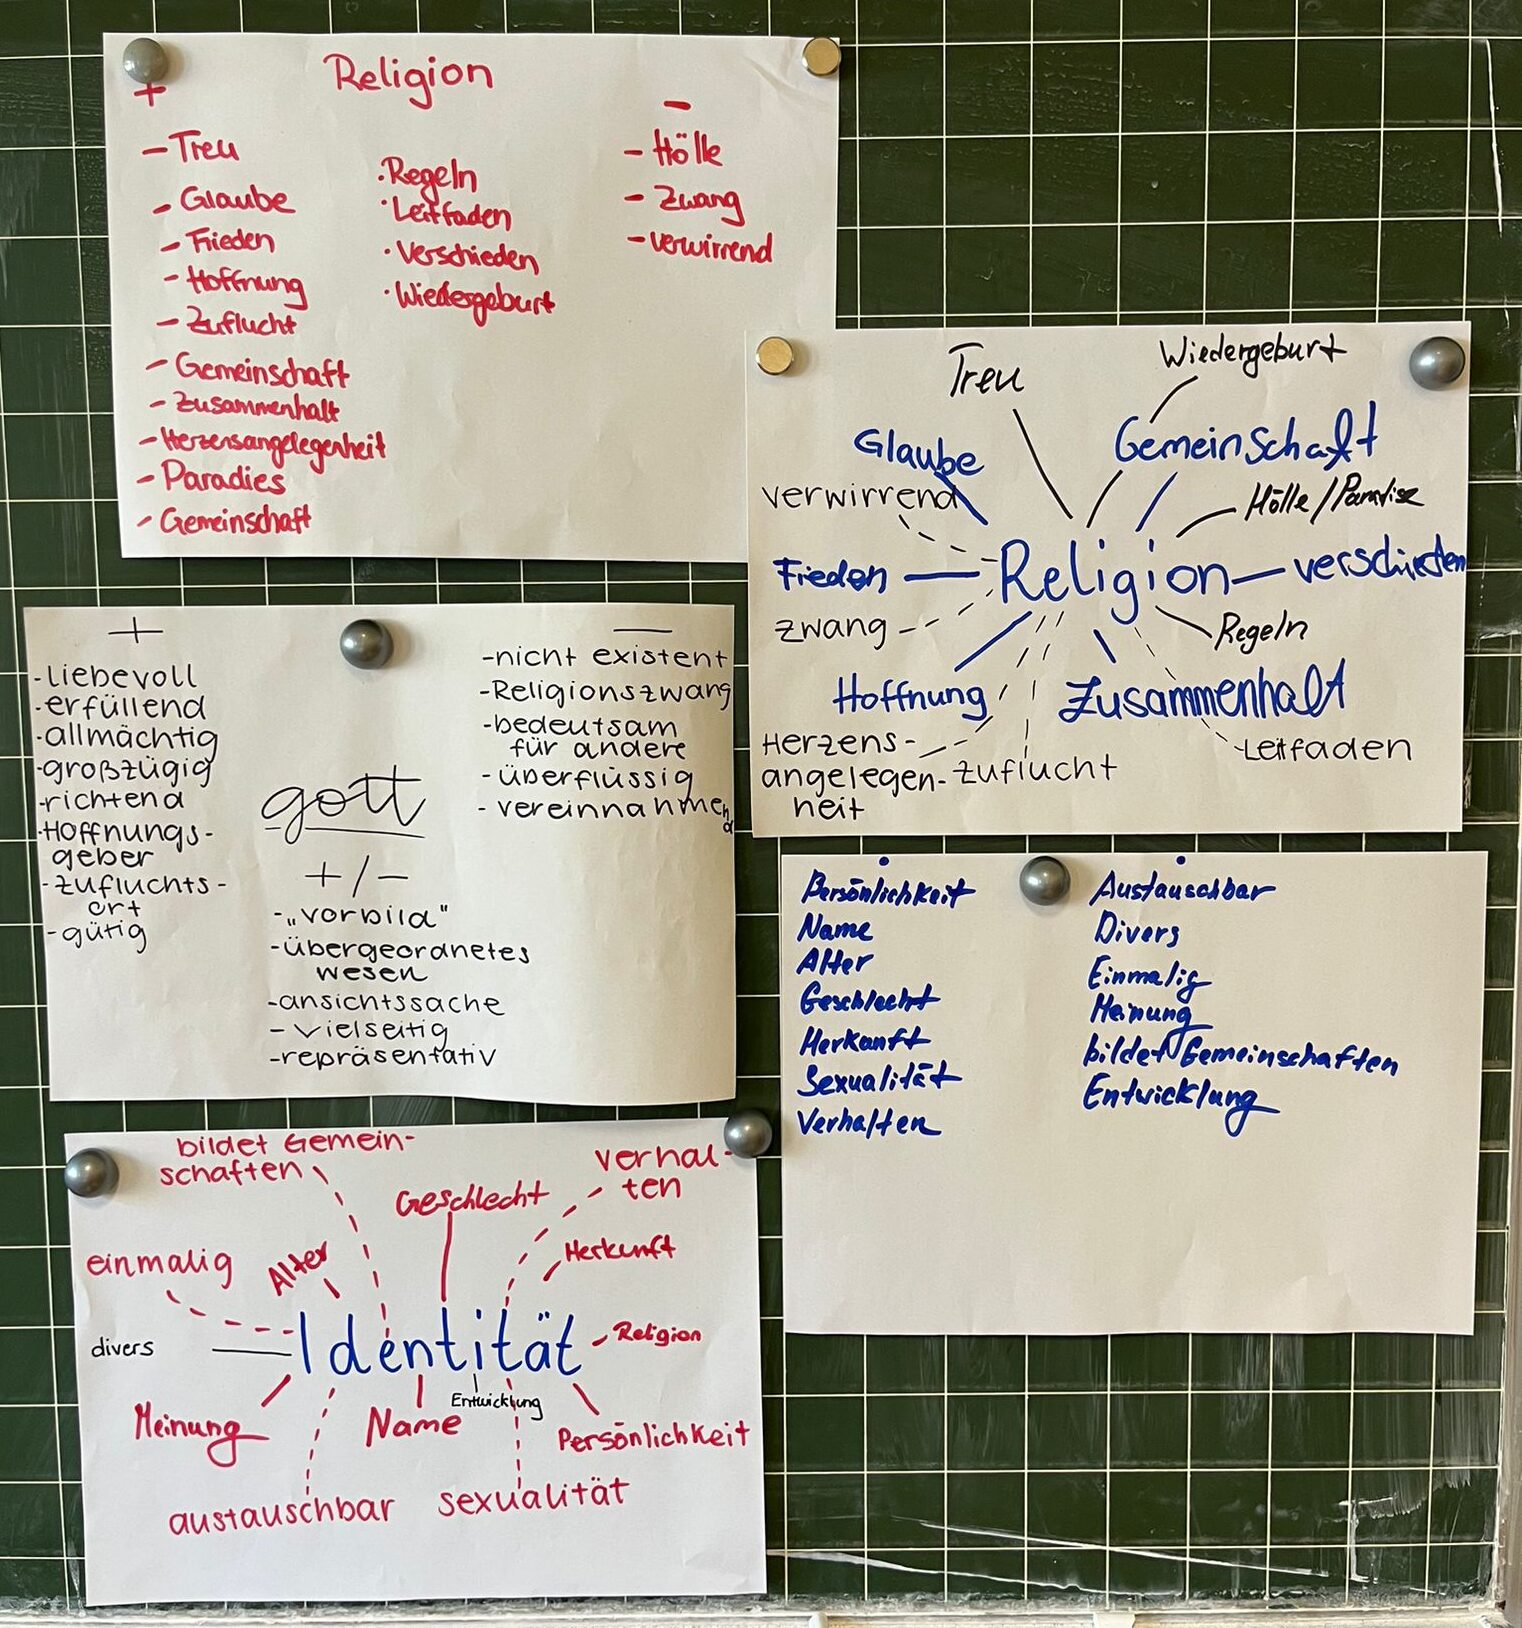 Religion
+
- Treu
- Glaube
- Frieden
- Hoffnung
- Zuflucht
- Gemeinschaft
- Zusammenhalt
- Herzensangelegenheit
- Paradies
- Gemeinschaft
· Regeln
· Leitfaden
· Verschieden
· Wiedergeburt
-
- Hölle
- Zwang
- verwirrend
Treu
Wiedergeburt
Glaube
Gemeinschaft
verwirrend
Hölle/Paradise
Frieden
Religion
verschieden
zwang
Regeln
Hoffnung
Zusammenhalt
Herzens-
angelegen-
heit
zuflucht
Leitfaden
+
-liebevoll
-erfüllend
-allmächtig
-großzügig
-richtend
-Hoffnungs-
geber
-zufluchts-
ort
-gütig
gott
+/-
-„vorbild"
-übergeordnetes
wesen
-ansichtssache
- vielseitig
-repräsentativ
—
-nicht existent
-Religionszwang
-bedeutsam
für andere
-überflüssig
- vereinnahmend
Persönlichkeit
Name
Alter
Geschlecht
Herkunft
Sexualität
Verhalten
Austauschbar
Divers
Einmalig
Meinung
bildet Gemeinschaften
Entwicklung
bildet Gemein-
schaften
Geschlecht
verhal-
ten
einmalig
Alter
Herkunft
divers
Identität
Religion
Meinung
Name
Entwicklung
Persönlichkeit
austauschbar
sexualität